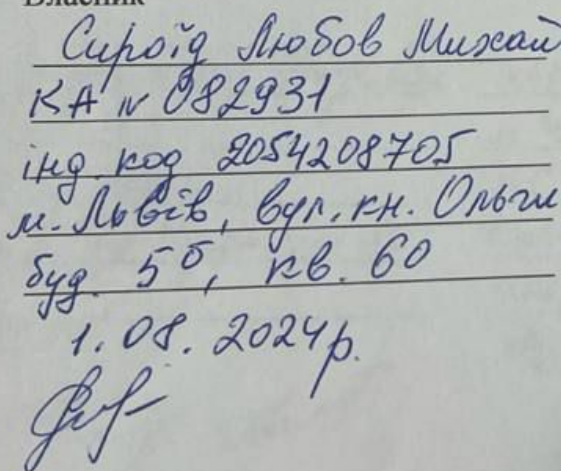 Власник
Сироїд Любов Михай
КА № 082931
інд. код 2054208705
м. Львів, вул. кн. Ольги
буд. 5б, кв. 60
1.08.2024р.